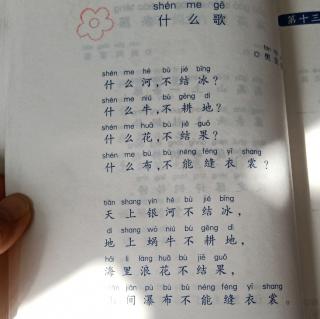 shén me gē
什么歌
第十三
shén me hé bù jié bīng
什么河,不结冰?
shén me niú bù gēng dì
什么牛,不耕地?
shén me huā bù jié guǒ
什么花,不结果?
shén me bù bù néng féng yī shang
什么布,不能缝衣裳?
tiān shang yín hé bù jié bīng
天上银河不结冰,
dì shang wō niú bù gēng dì
地上蜗牛不耕地,
hǎi li làng huā bù jié guǒ
海里浪花不结果,
jiān pù bù bù néng féng yī shang
间瀑布不能缝衣裳。